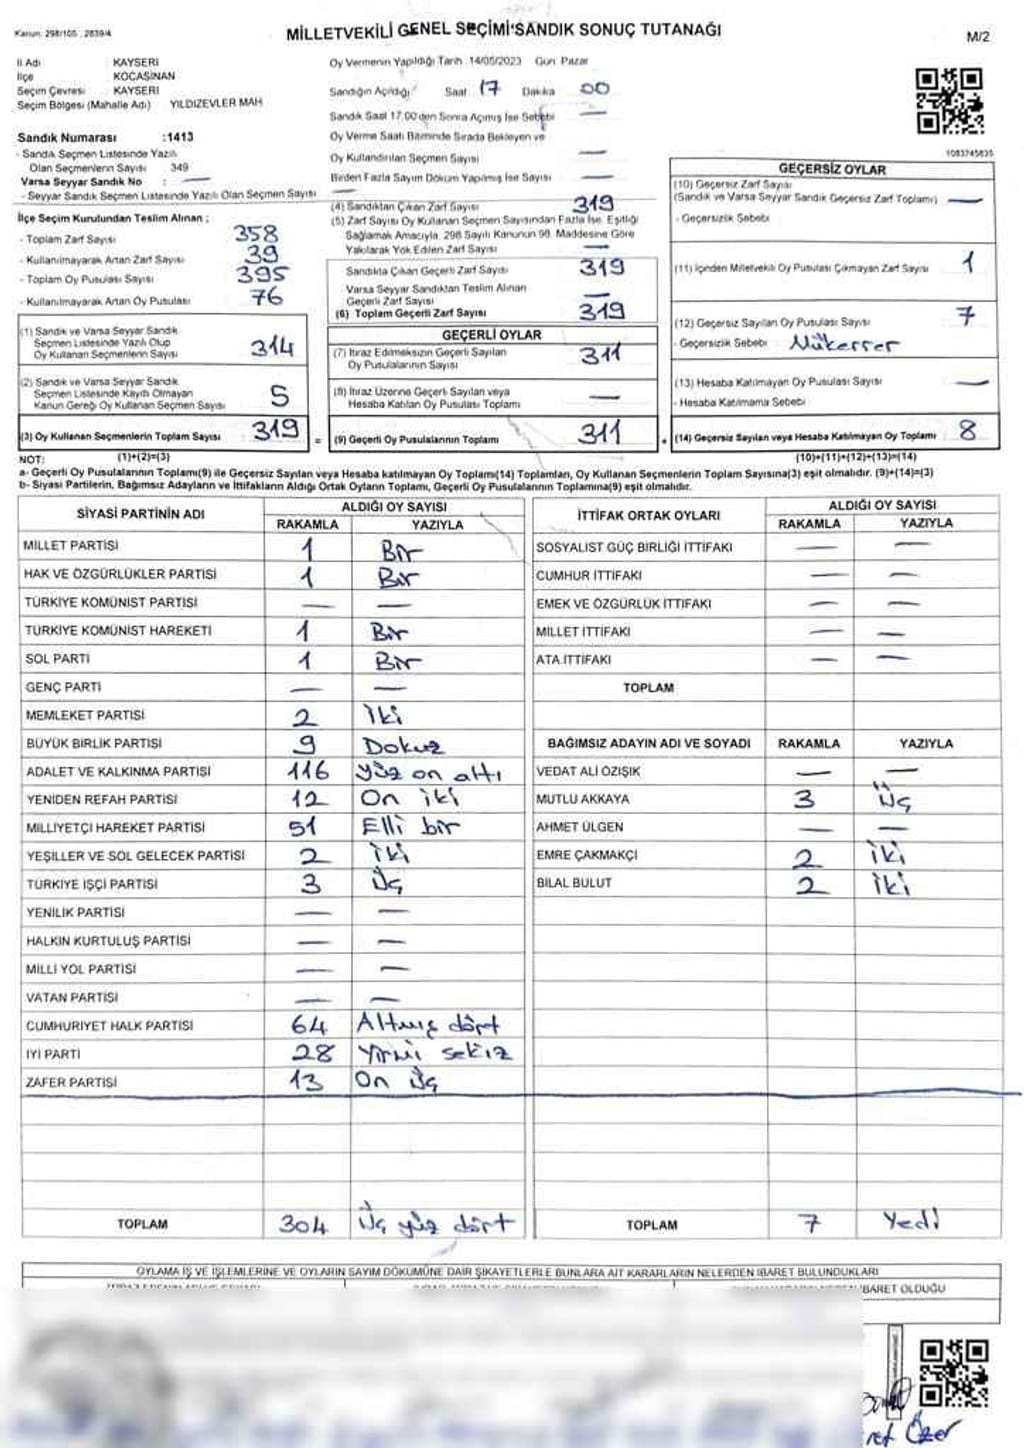 Kanun: 298/105 , 2839/4
MİLLETVEKİLİ GENEL SEÇİMİ SANDIK SONUÇ TUTANAĞI
M/2
İl Adı : KAYSERİ
İlçe : KOCASİNAN
Seçim Çevresi : KAYSERİ
Seçim Bölgesi (Mahalle Adı) : YILDIZEVLER MAH
Sandık Numarası :1413
- Sandık Seçmen Listesinde Yazılı
Olan Seçmenlerin Sayısı : 349
Varsa Seyyar Sandık No : —
- Seyyar Sandık Seçmen Listesinde Yazılı Olan Seçmen Sayısı —
İlçe Seçim Kurulundan Teslim Alınan :
- Toplam Zarf Sayısı 358
- Kullanılmayarak Artan Zarf Sayısı 39
- Toplam Oy Pusulası Sayısı 395
- Kullanılmayarak Artan Oy Pusulası 76
(1) Sandık ve Varsa Seyyar Sandık
Seçmen Listesinde Yazılı Olup
Oy Kullanan Seçmenlerin Sayısı 314
(2) Sandık ve Varsa Seyyar Sandık
Seçmen Listesinde Kayıtlı Olmayan
Kanun Gereği Oy Kullanan Seçmen Sayısı 5
(3) Oy Kullanan Seçmenlerin Toplam Sayısı 319
Oy Vermenin Yapıldığı Tarih :14/05/2023 Gün: Pazar
Sandığın Açıldığı Saat 17 Dakika 00
Sandık Saat 17:00'den Sonra Açılmış İse Sebebi —
Oy Verme Saati Bitiminde Sırada Bekleyen ve
Oy Kullandırılan Seçmen Sayısı —
Birden Fazla Sayım Döküm Yapılmış İse Sayısı —
(4) Sandıktan Çıkan Zarf Sayısı 319
(5) Zarf Sayısı Oy Kullanan Seçmen Sayısından Fazla İse, Eşitliği
Sağlamak Amacıyla, 298 Sayılı Kanunun 98. Maddesine Göre
Yakılarak Yok Edilen Zarf Sayısı —
Sandıkta Çıkan Geçerli Zarf Sayısı 319
Varsa Seyyar Sandıktan Teslim Alınan
Geçerli Zarf Sayısı —
(6) Toplam Geçerli Zarf Sayısı 319
GEÇERLİ OYLAR
(7) İtiraz Edilmeksizin Geçerli Sayılan
Oy Pusulalarının Sayısı 311
(8) İtiraz Üzerine Geçerli Sayılan veya
Hesaba Katılan Oy Pusulası Toplamı —
= (9) Geçerli Oy Pusulalarının Toplamı 311 +
1083745835
GEÇERSİZ OYLAR
(10) Geçersiz Zarf Sayısı
(Sandık ve Varsa Seyyar Sandık Geçersiz Zarf Toplamı) —
- Geçersizlik Sebebi :
(11) İçinden Milletvekili Oy Pusulası Çıkmayan Zarf Sayısı 1
(12) Geçersiz Sayılan Oy Pusulası Sayısı 7
- Geçersizlik Sebebi : Mükerrer
(13) Hesaba Katılmayan Oy Pusulası Sayısı —
- Hesaba Katılmama Sebebi :
(14) Geçersiz Sayılan veya Hesaba Katılmayan Oy Toplamı 8
NOT: (1)+(2)=(3) (10)+(11)+(12)+(13)=(14)
a- Geçerli Oy Pusulalarının Toplamı(9) ile Geçersiz Sayılan veya Hesaba katılmayan Oy Toplamı(14) Toplamları, Oy Kullanan Seçmenlerin Toplam Sayısına(3) eşit olmalıdır. (9)+(14)=(3)
b- Siyasi Partilerin, Bağımsız Adayların ve İttifakların Aldığı Ortak Oyların Toplamı, Geçerli Oy Pusulalarının Toplamına(9) eşit olmalıdır.
SİYASİ PARTİNİN ADI ALDIĞI OY SAYISI
RAKAMLA YAZIYLA
MİLLET PARTİSİ 1 Bir
HAK VE ÖZGÜRLÜKLER PARTİSİ 1 Bir
TÜRKİYE KOMÜNİST PARTİSİ — —
TÜRKİYE KOMÜNİST HAREKETİ 1 Bir
SOL PARTİ 1 Bir
GENÇ PARTİ — —
MEMLEKET PARTİSİ 2 İki
BÜYÜK BİRLİK PARTİSİ 9 Dokuz
ADALET VE KALKINMA PARTİSİ 116 yüz on altı
YENİDEN REFAH PARTİSİ 12 On iki
MİLLİYETÇİ HAREKET PARTİSİ 51 Elli bir
YEŞİLLER VE SOL GELECEK PARTİSİ 2 İki
TÜRKİYE İŞÇİ PARTİSİ 3 Üç
YENİLİK PARTİSİ — —
HALKIN KURTULUŞ PARTİSİ — —
MİLLİ YOL PARTİSİ — —
VATAN PARTİSİ — —
CUMHURİYET HALK PARTİSİ 64 Altmış dört
İYİ PARTİ 28 Yirmi sekiz
ZAFER PARTİSİ 13 On üç
TOPLAM 304 Üç yüz dört
İTTİFAK ORTAK OYLARI ALDIĞI OY SAYISI
RAKAMLA YAZIYLA
SOSYALİST GÜÇ BİRLİĞİ İTTİFAKI — —
CUMHUR İTTİFAKI — —
EMEK VE ÖZGÜRLÜK İTTİFAKI — —
MİLLET İTTİFAKI — —
ATA İTTİFAKI — —
TOPLAM
BAĞIMSIZ ADAYIN ADI VE SOYADI RAKAMLA YAZIYLA
VEDAT ALİ ÖZIŞIK — —
MUTLU AKKAYA 3 Üç
AHMET ÜLGEN — —
EMRE ÇAKMAKÇI 2 İki
BİLAL BULUT 2 İki
TOPLAM 7 Yedi
OYLAMA İŞ VE İŞLEMLERİNE VE OYLARIN SAYIM DÖKÜMÜNE DAİR ŞİKAYETLERLE BUNLARA AİT KARARLARIN NELERDEN İBARET BULUNDUKLARI
İBARET OLDUĞU
Özer